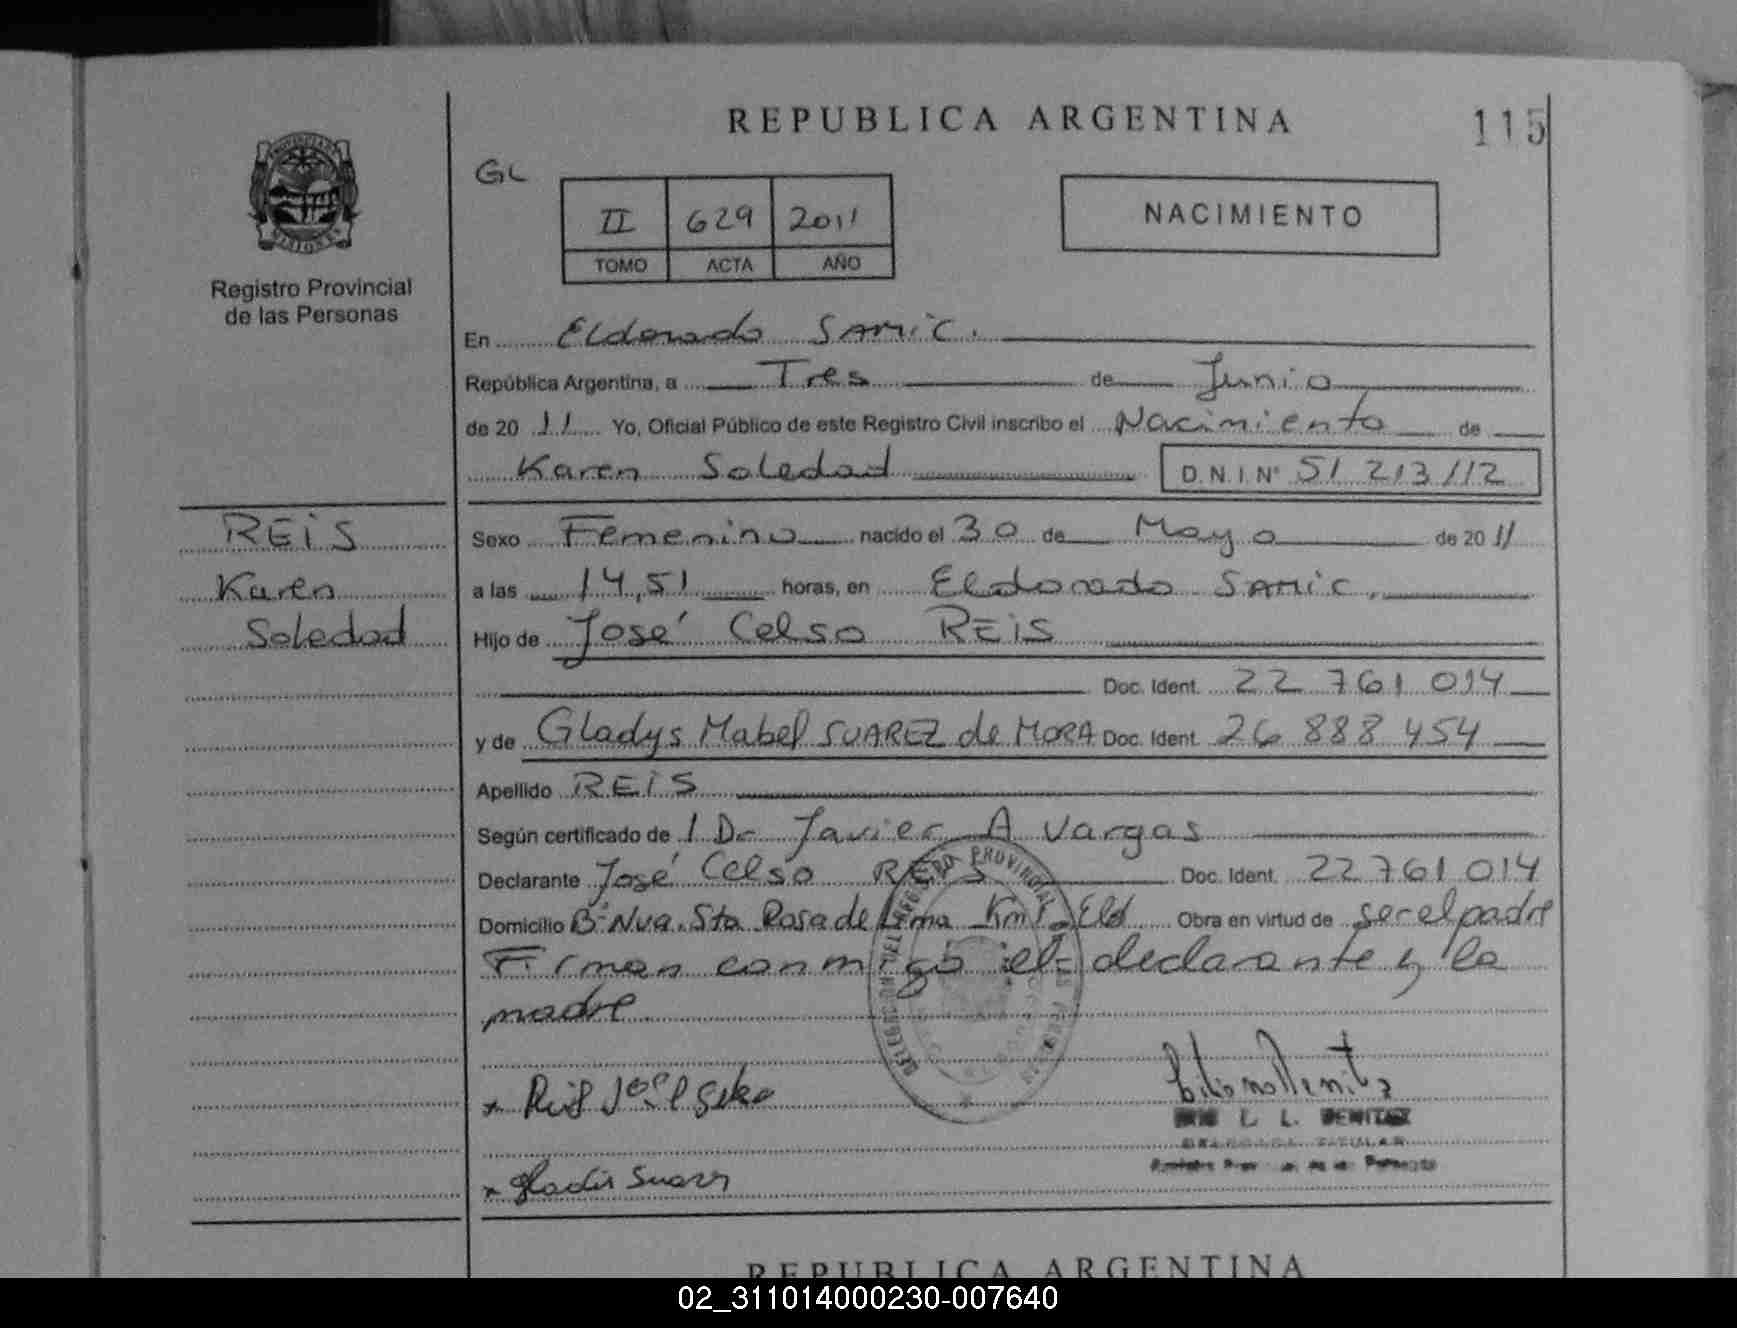 REPUBLICA ARGENTINA
115
GL
II 629 2011
TOMO ACTA AÑO
NACIMIENTO
Registro Provincial
de las Personas
En Eldorado SAMIC.
República Argentina, a Tres de Junio
de 20 11 Yo, Oficial Público de este Registro Civil inscribo el Nacimiento de
Karen Soledad D.N.I.Nº 51 213 112
REIS
Karen
Soledad
Sexo Femenino nacido el 30 de Mayo de 2011
a las 14,51 horas, en Eldorado SAMIC.
Hijo de José Celso REIS
Doc. Ident. 22 761 014
y de Gladys Mabel SUAREZ de MORA Doc. Ident. 26 888 454
Apellido REIS
Según certificado de l Dr Javier A Vargas
Declarante José Celso REIS Doc. Ident. 22761014
Domicilio Bº Nva. Sta Rosa de Lima Km 1 Eld Obra en virtud de ser el padre
Firman conmigo el declarante y la
madre
DELEGACION DEL REGISTRO PROVINCIAL DE LAS PERSONAS
L. L. BENITEZ
REPUBLICA ARGENTINA
02_311014000230-007640